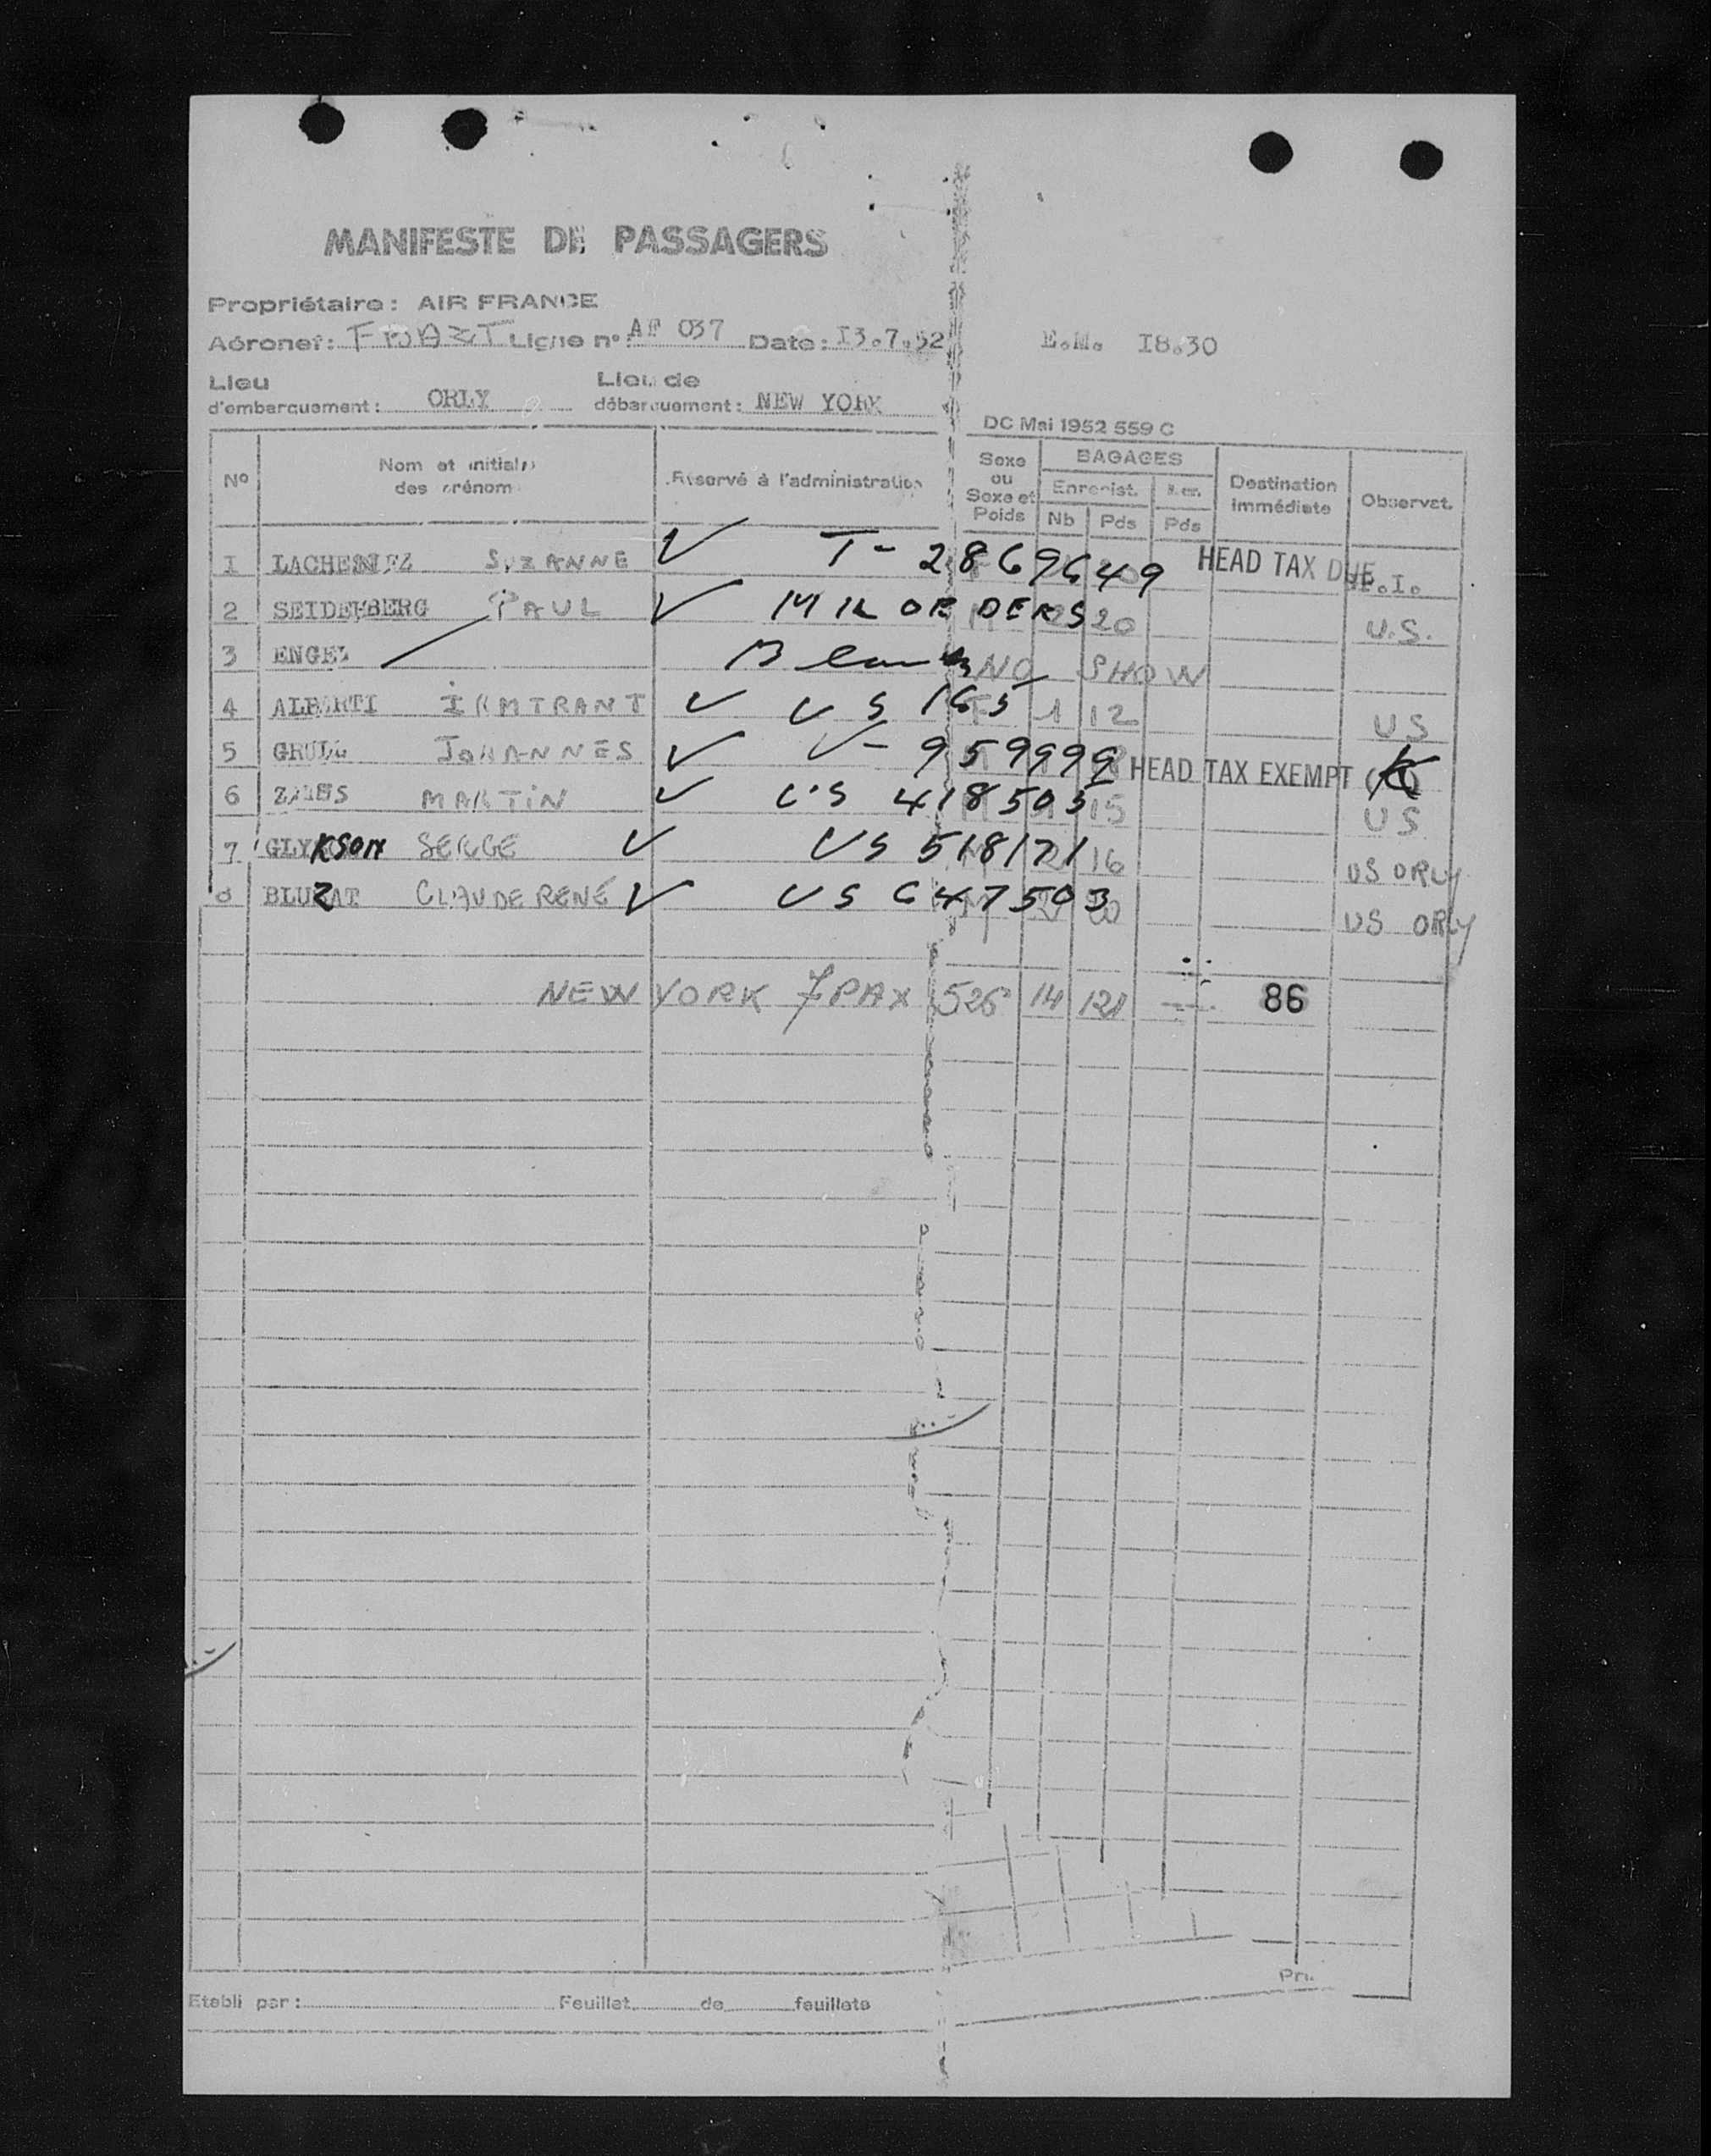 MANIFESTE DE PASSAGERS
Propriétaire : AIR FRANCE
Aéronef : Ligne n° AF 037 Date : I3.7.52 E.M. I8.30
Lieu d'embarquement : ORLY Lieu de débarquement : NEW YORK
DC Mai 1952 559 C
N° Nom et initiales des prénoms Réservé à l'administration Sexe ou Sexe et Poids BAGAGES Enregist. Nb Pds Pds Destination immédiate Observat.
I SUZANNE ✓ T-2869649 HEAD TAX DUE
2 SEIDENBERG PAUL ✓ MIL ORDERS 20 U.S.
3 ENGEL Blank NO SHOW
4 ALBERTI ✓ US 165 1 12 US
5 JOHANNES ✓ V-959999 HEAD TAX EXEMPT
6 MARTIN ✓ US 418505 15 US
7 GLYKSON SERGE ✓ US 518171 16 US ORLY
8 BLUZAT CLAUDE RENÉ ✓ US 647503 20 US ORLY
NEW YORK 7 PAX 526 14 121 86
Etabli par : Feuillet de feuillets